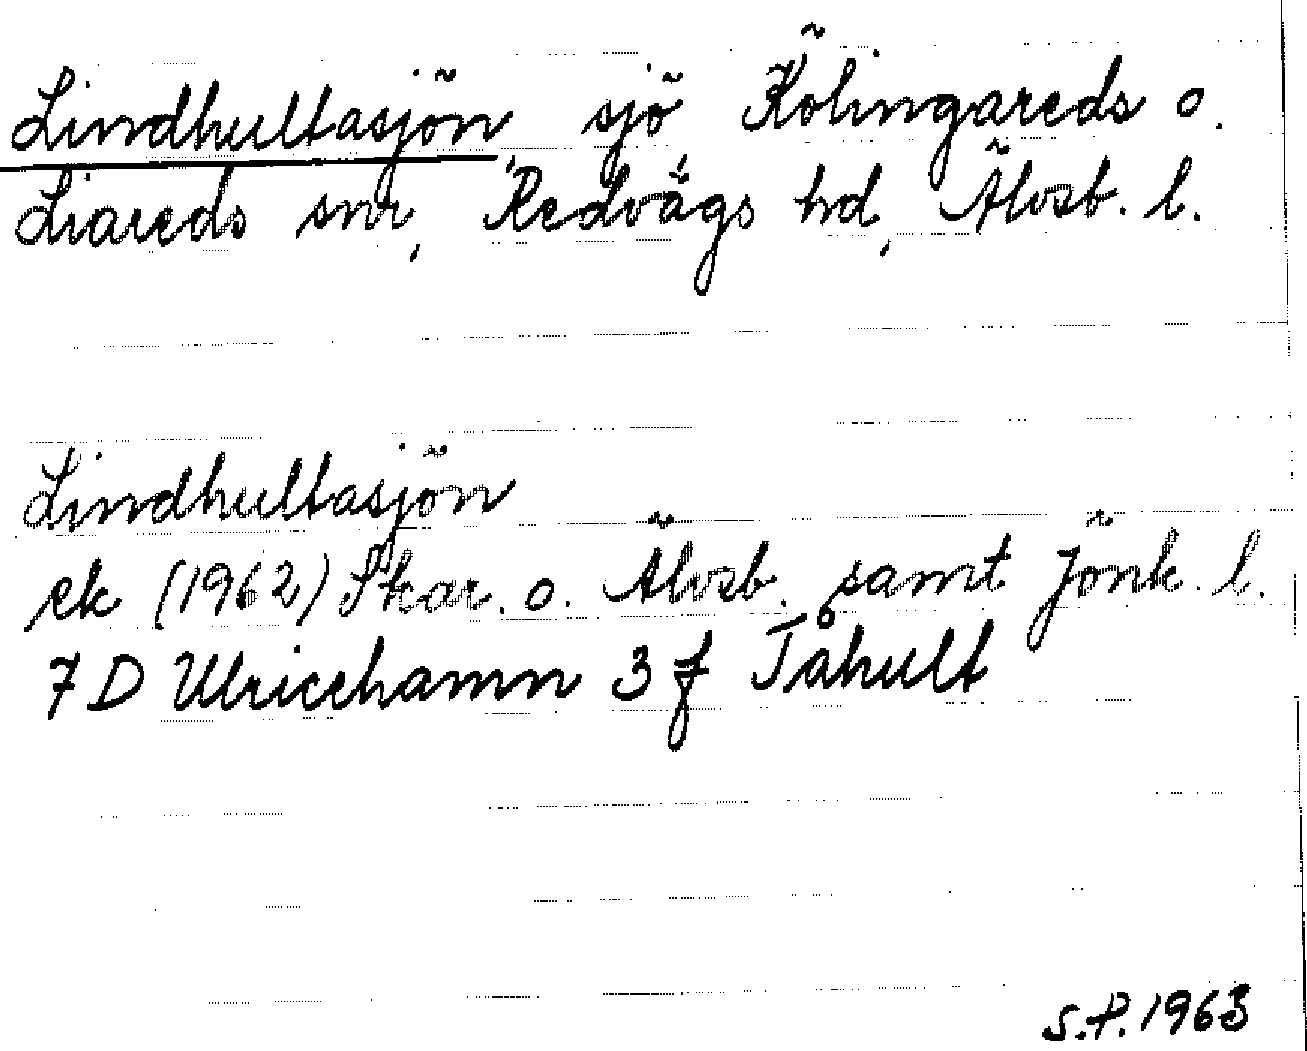 Lindhultasjön, sjö Kölingareds o.
Liareds snr, Redvägs hd, Älvsb. l.
Lindhultasjön
ek (1962) Skar. o. Älvsb. samt Jönk. l.
7 D Ulricehamn 3 f Tåhult
S.P. 1963